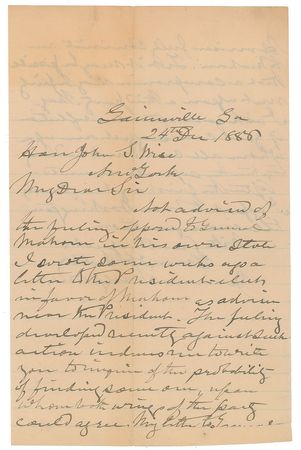 Gainesville Ga
24th Dec 1888
Hon John S. Wise
New York
My Dear Sir
Not advised of
the feeling opposed to General
Mahone in his own State
I wrote some weeks ago a
letter to the President elect
in favor of Mahone as adviser
near the President. The feeling
developed recently against such
action induces me to write
you to inquire of the probability
of finding some one, upon
whom both wings of the party
could agree. My letter to